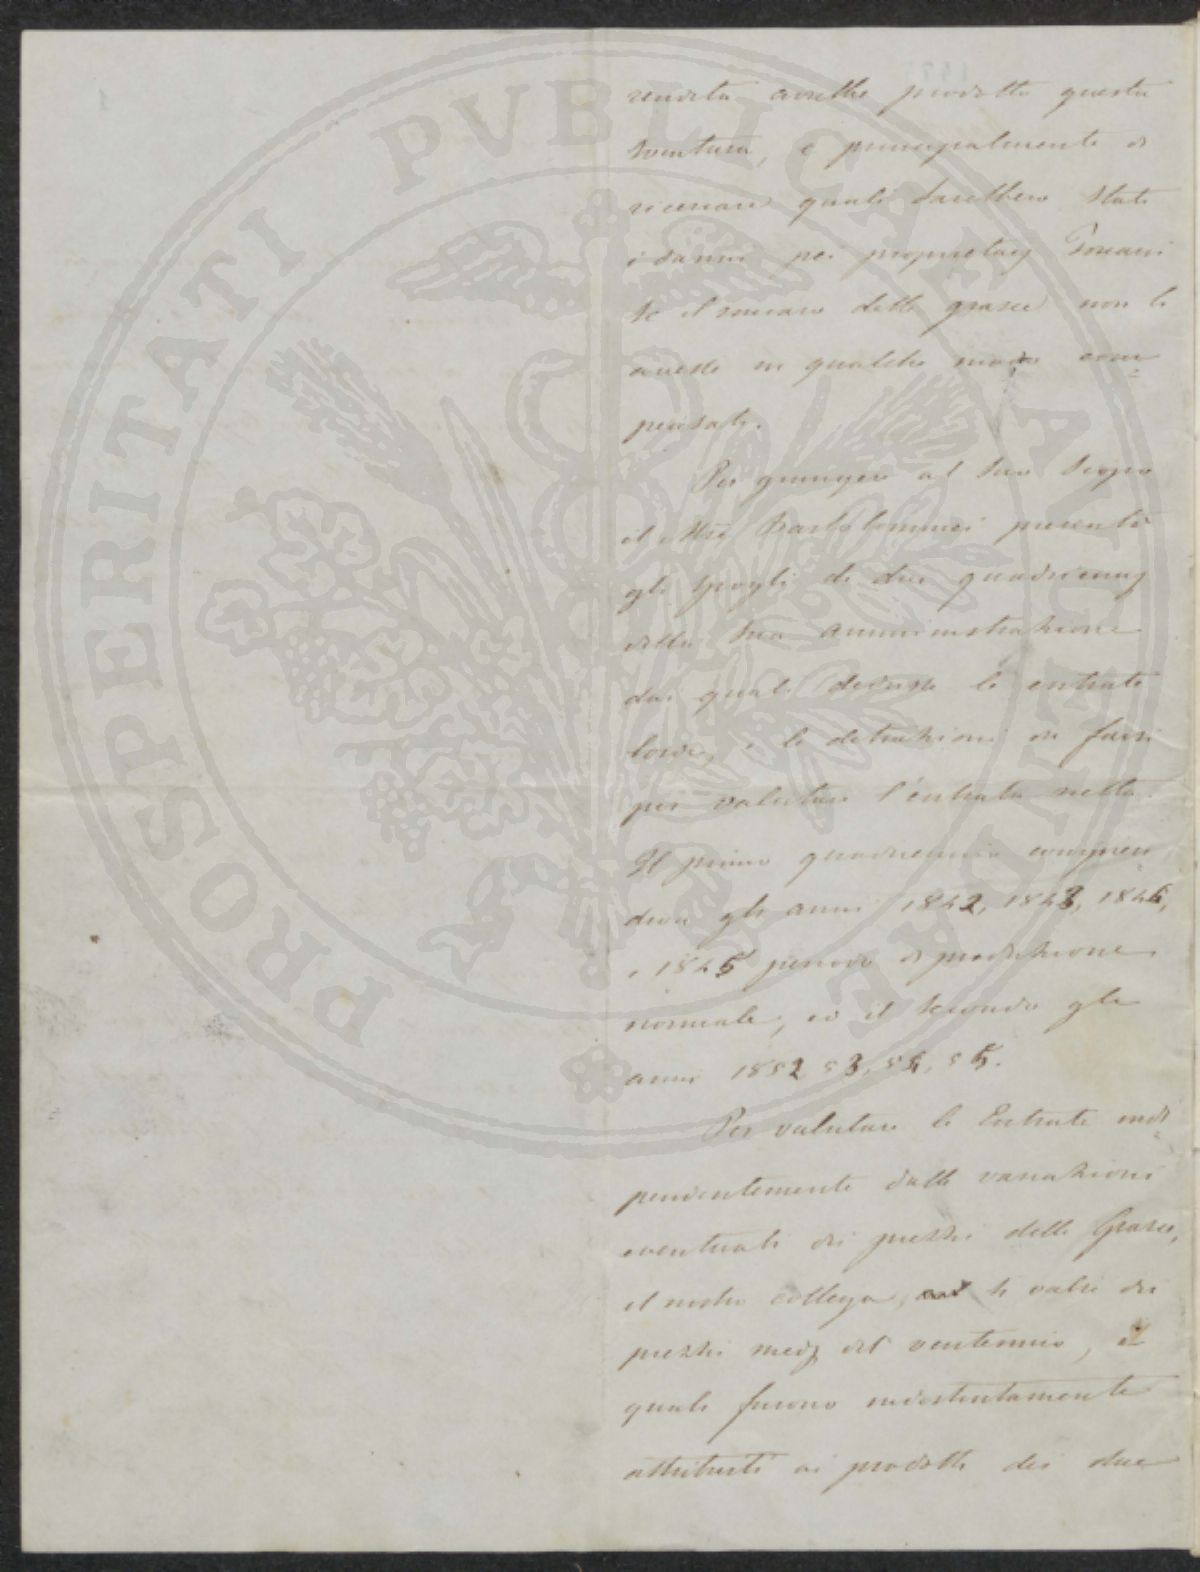 rendita avrebbe prodotto questa
sventura, e principalmente di
ricercare quali sarebbero stati
i danni pei proprietarj Toscani
se il rincaro delle grasce non li
avesse in qualche modo com=
pensati.
Per giungere al suo scopo
il Mse Bartolommei presentò
gli spogli di due quadriennj
della sua amministrazione
dai quali dedusse le entrate
lorde, e le detrazioni da farsi
per valutare l'entrata netta.
Il primo quadriennio compren
deva gli anni 1842, 1843, 1844,
e 1845 periodo di produzione
normale, ed il secondo gli
anni 1852 53, 54, 55.
Per valutare le Entrate indi=
pendentemente dalle variazioni
eventuali dei prezzi delle Grasce,
il nostro collega, si valse dei
prezzi medj del ventennio, i
quali furono indistintamente
attribuiti ai prodotti dei due
PROSPERITATI PVBLICAE AVGENDAE